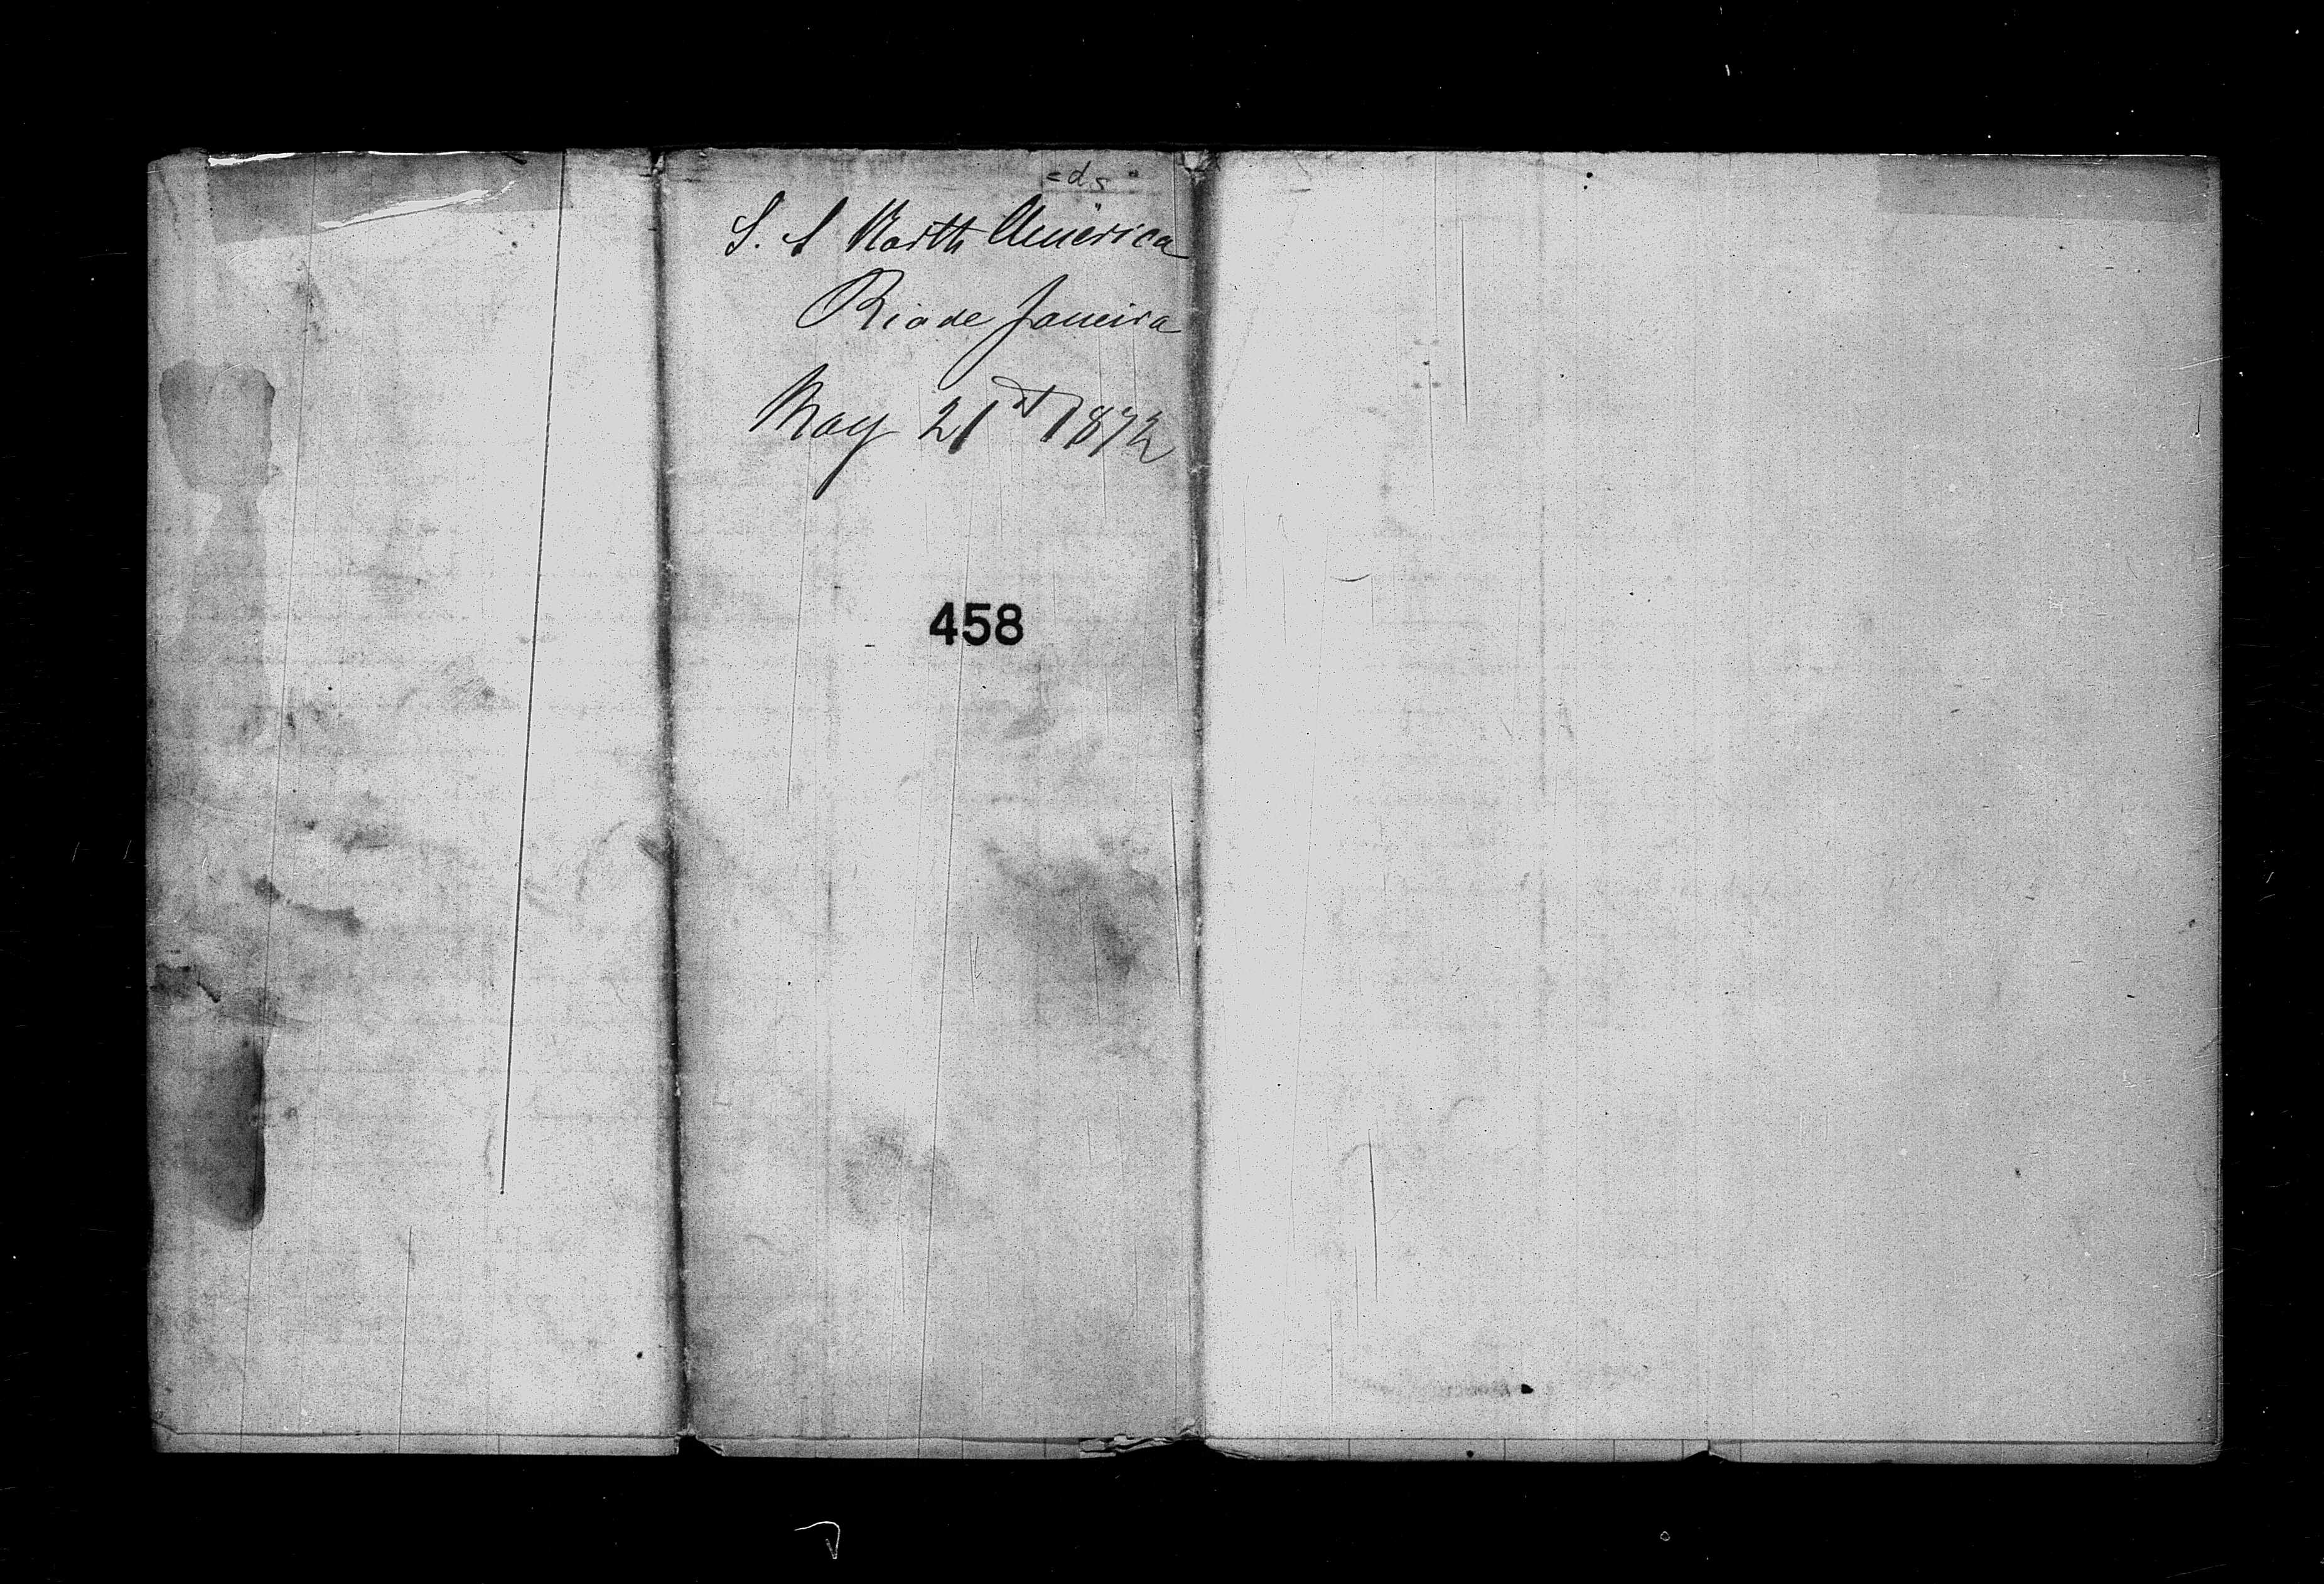 S. S North America
Rio de Janeiro
May 21st 1872
458